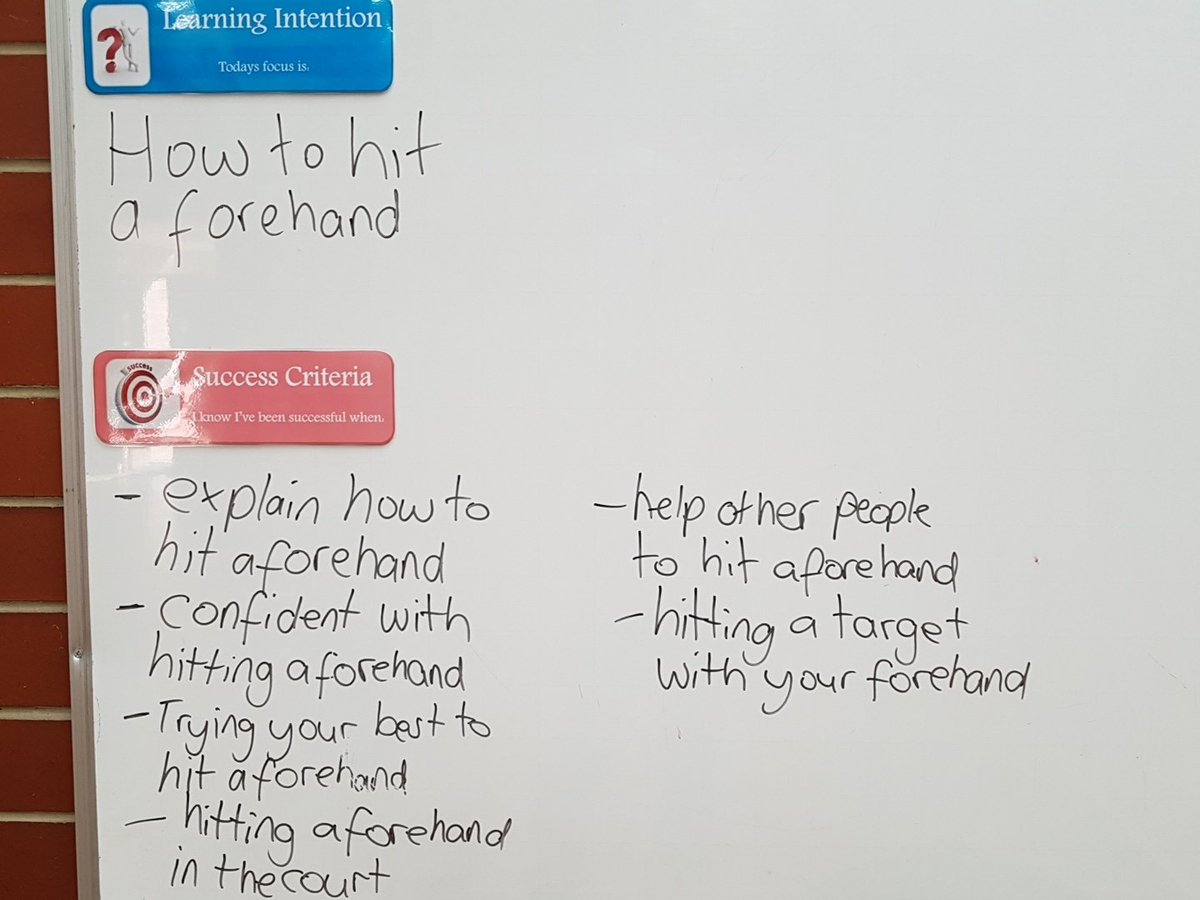 Learning Intention
Todays focus is.
How to hit
a forehand
success
Success Criteria
I know I've been successful when.
- explain how to
hit a forehand
- confident with
hitting a forehand
- Trying your best to
hit a forehand
- hitting a forehand
in the court
- help other people
to hit a forehand
- hitting a target
with your forehand